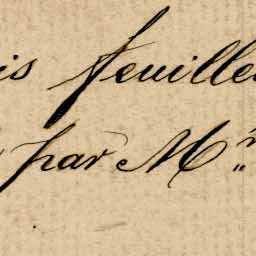 is feuille
par Mr